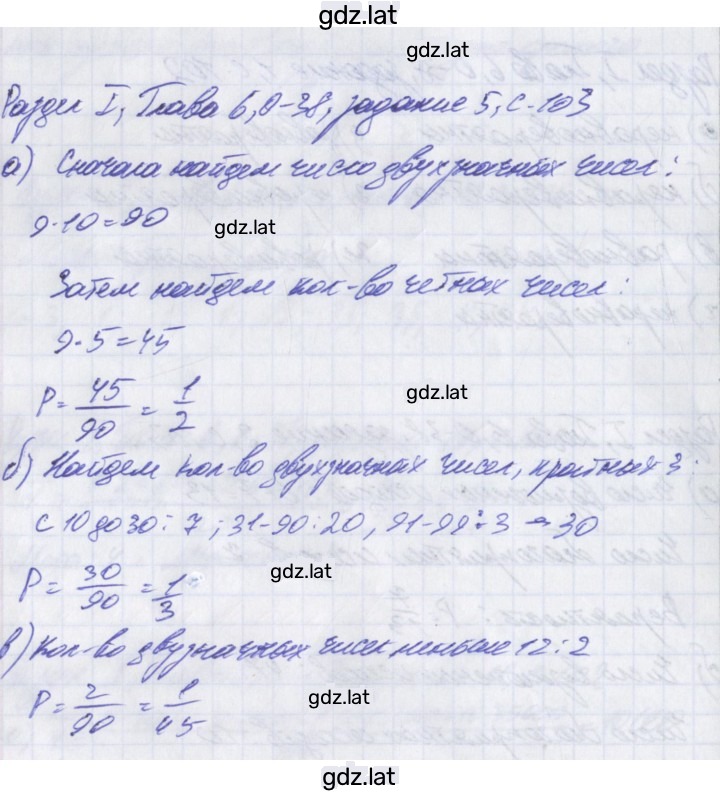 gdz.lat
gdz.lat
Раздел I, Глава 6, О-38, задание 5, С-103
а) Сначала найдем число двухзначных чисел:
9·10=90
gdz.lat
Затем найдем кол-во четных чисел:
9·5=45
P= 45/90 = 1/2
gdz.lat
б) Найдем кол-во двухзначных чисел, кратных 3:
с 10 до 30: 7; 31-90: 20, 91-99: 3 → 30
P= 30/90 = 1/3
gdz.lat
в) Кол-во двузначных чисел меньше 12: 2
P= 2/90 = 1/45
gdz.lat
gdz.lat